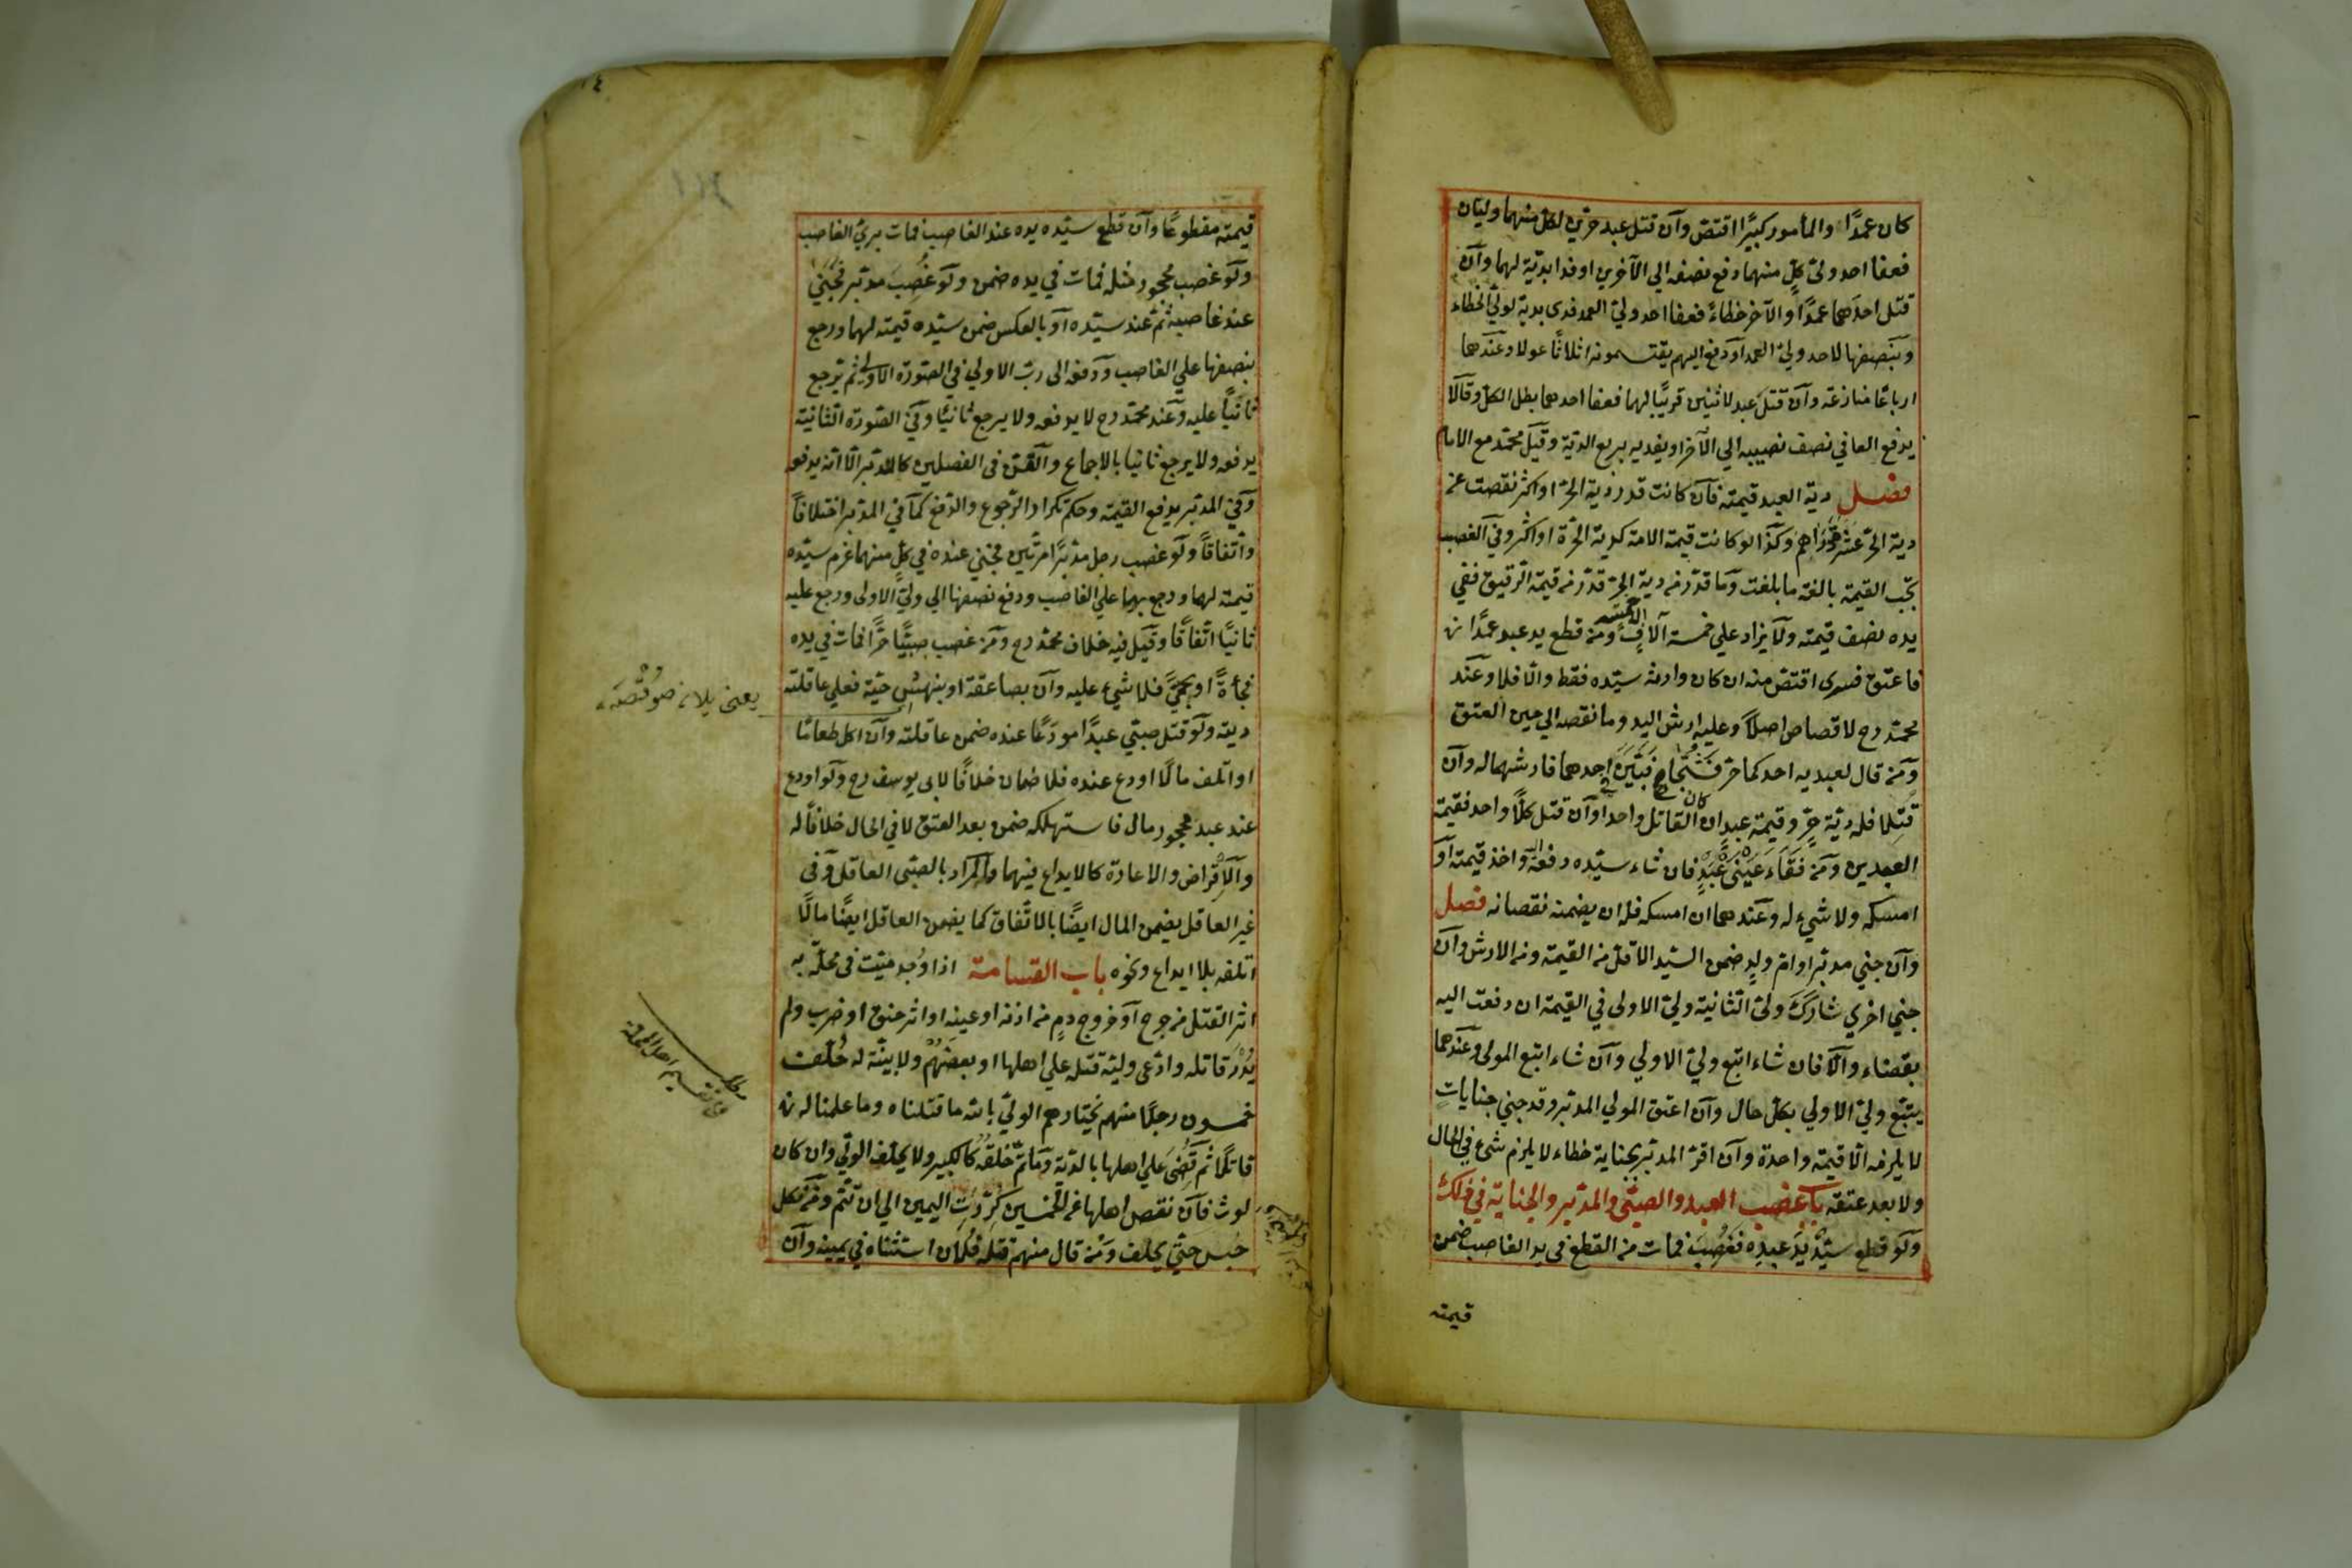 كان عمدًا والمأمور كبيرًا اقتص وآن قتل عبد حرين لكل منهما وليان
فعفا احد وليّ كلٍ منهما دفع نصفه الي الآخرين او فدا بدية لهما وآن
قتل احدهما عمدًا والآخر خطاءً فعفا احد وليّ العمد فدى بدية لوليّ الخطاء
وبنصفها لاحد وليّ العمد آو دفع اليهم يقتسمونه اثلاثًا عولا وعندهما
ارباعًا منازعة وآن قتل عبد لاثنين قريبًا لهما فعفا احدهما بطل الكل وقالا
يدفع العافي نصف نصيبه الي الآخر او يفديه بربع الدية وقيل محمد مع الامام
فصل دية العبد قيمته فآن كانت قدر دية الحر او اكثر نقصت عن
دية الحر عشرة دراهم وكذا لو كانت قيمة الامة كدية الحرة او اكثر وفي الغصب
تجب القيمة بالغة ما بلغت وما قدر من دية الحر قدر من قيمة الرقيق ففي
يده نصف قيمته ولا يزاد علي خمسة آلافٍ الا خمسة ومن قطع يد عبد عمدًا
فاعتق فسرى اقتص منه ان كان وارثه سيده فقط والّا فلا وعند
محمد رح لا قصاص اصلاً وعليه ارش اليد وما نقصه الي حين العتق
ومن قال لعبديه احدكما حر فشجا فبين احدهما فارشهما له وآن
قتلا فله دية حر وقيمة عبد ان كان القاتل واحدا وآن قتل كلًا واحد فقيمة
العبدين ومن فقاء عيني عبدٍ فان شاء سيده دفعه واخذ قيمته آو
امسكه ولا شيء له وعندهما ان امسكه فله ان يضمنه نقصانه فصل
وآن جني مدبر او ام ولدٍ ضمن السيد الاقل من القيمة ومن الارش وآن
جني اخري شارك وليّ الثانية وليّ الاولي في القيمة ان دفعت اليه
بقضاء والّا فان شاء اتبع وليّ الاولي وآن شاء اتبع المولي وعندهما
يتبع وليّ الاولي بكل حال وآن اعتق المولي المدبر وقد جني جناياتٍ
لا يلزمه الّا قيمة واحدة وآن اقر المدبر بجناية خطاء لا يلزم شيء في الحال
ولا بعد عتقه باب غصب العبد والصبي والمدبر والجناية في ذلك
ولو قطع سيد يد عبده فغصب فمات من القطع في يد الغاصب ضمن
قيمته
قيمته مقطوعًا وآن قطع سيده يده عند الغاصب فمات بريء الغاصب
ولو غصب محجور مثله فمات في يده ضمن ولو غصب مدبر فجني
عند غاصبه ثم عند سيده آو بالعكس ضمن سيده قيمته لهما ورجع
بنصفها علي الغاصب ودفعه الى رب الاولي في الصورة الاولي ثم يرجع
ثانيًا عليه وعند محمد رح لا يدفعه ولا يرجع ثانيًا وفي الصورة الثانية
يدفعه ولا يرجع ثانيا بالاجماع والقن في الفصلين كالمدبر الّا انه يدفعه
وفي المدبر يدفع القيمة وحكم تكرار الرجوع والدفع كما في المدبر اختلافًا
واتفاقًا ولو غصب رجل مدبرًا مرتين فجني عنده في كلٍ منهما غرم سيده
قيمته لهما ورجع بها علي الغاصب ودفع نصفها الي وليّ الاولى ورجع عليه
ثانيًا اتفاقًا وقيل فيه خلاف محمد رح ومن غصب صبيًا حرًا فمات في يده
فجأةً او بحمي فلا شيء عليه وآن بصاعقة او بنهش حية فعلي عاقلته
ديته ولو قتل صبي عبدًا مودعًا عنده ضمن عاقلته وآن اكل طعامًا
او اتلف مالًا اودع عنده فلا ضمان خلافًا لابي يوسف رح ولو اودع
عند عبد محجور مال فاستهلكه ضمن بعد العتق لا في الحال خلافًا له
والاقراض والاعارة كالايداع فيهما والمراد بالصبي العاقل وفي
غير العاقل يضمن المال ايضًا بالاتفاق كما يضمن العاقل ايضًا مالًا
اتلفه بلا ايداع ونحوه باب القسامة اذا وُجد ميت في محلة به
اثر القتل من جرح آو خروج دمٍ من اذنه او عينه او اثر خنق او ضرب ولم
يُدْرَ قاتله وادعى وليه قتله علي اهلها او بعضهم ولا بينة له حُلّف
خمسون رجلًا منهم يختارهم الولي بالله ما قتلناه وما علمنا له
قاتلًا ثم قضي علي اهلها بالدية وما تم خلقه كالكبير ولا يحلف الولي وان كان
لوث فآن نقص اهلها عن الخمسين كررت اليمين الي ان تتم ومن نكل
حبس حتي يحلف ومن قال منهم قتله فلان استثناه في يمينه وآن